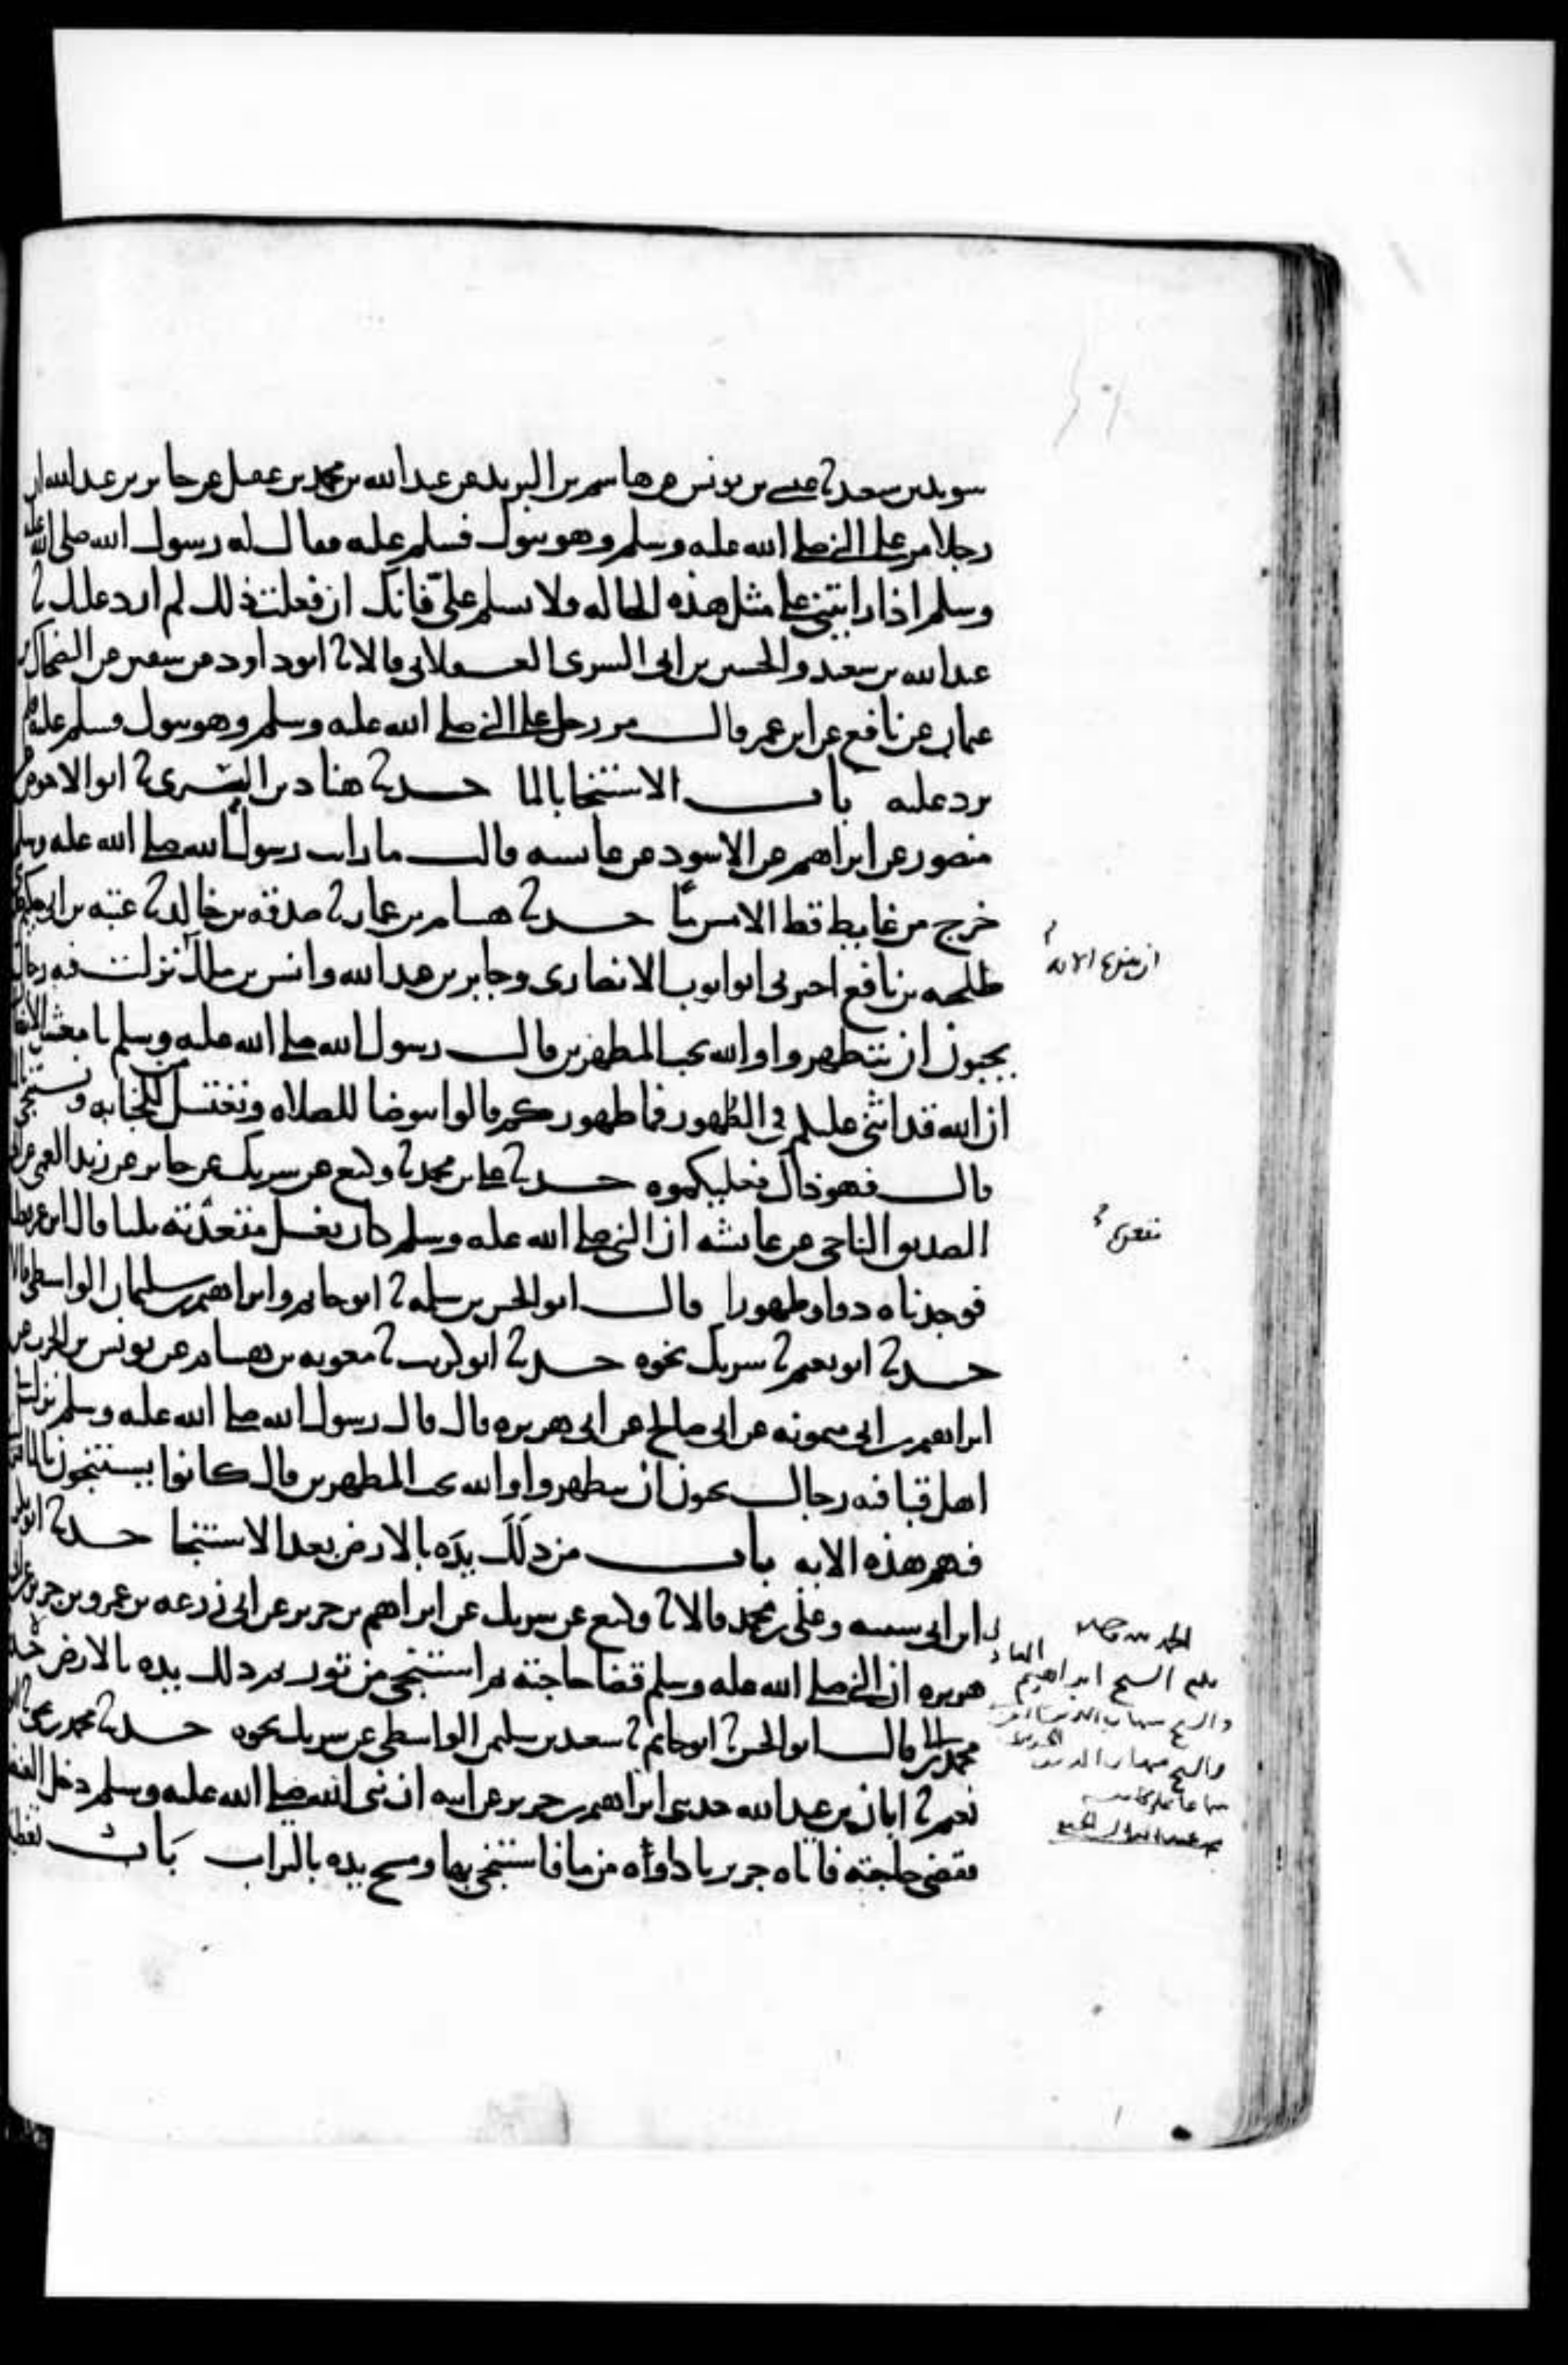 سويد بن سعد ثنا عيسى بن يونس عن هاشم بن البريد عن عبد الله بن محمد بن عقيل عن جابر بن عبد الله ان
رجلا مر على النبي صلى الله عليه وسلم وهو يبول فسلم عليه فقال له رسول الله صلى الله عليه
وسلم اذا رايتني على مثل هذه الحاله فلا تسلم علي فانك ان فعلت ذلك لم ارد عليك ثنا
عبد الله بن سعيد والحسين بن ابى السرى العسقلانى قالا ثنا ابو داود عن سفين عن الضحاك بن
عثمان عن نافع عن ابن عمر قال مر رجل على النبي صلى الله عليه وسلم وهو يبول فسلم عليه فلم
يرد عليه باب الاستنجا بالما حدثنا هناد بن السرى ثنا ابو الاحوص عن
منصور عن ابراهيم عن الاسود عن عائشه قالت ما رايت رسول الله صلى الله عليه وسلم
خرج من غايط قط الا مس ما حدثنا هشام بن عمار ثنا صدقه بن خالد ثنا عتبه بن ابى حكيم
طلحه بن نافع اخبرنى ابو ايوب الانصارى وجابر بن عبد الله وانس بن مالك نزلت فيه رجال
يحبون ان يتطهروا والله يحب المطهرين قال رسول الله صلى الله عليه وسلم يا معشر الانصار
ان الله قد اثنى عليكم في الطهور فما طهوركم قالوا نتوضا للصلاه ونغتسل من الجنابه ونستنجي بالما
قال فهو ذاك فعليكموه حدثنا على بن محمد ثنا وكيع عن شريك عن جابر عن زيد العمى عن ابى
الصديق الناجى عن عائشه ان النبي صلى الله عليه وسلم كان يغسل مقعدته ثلثا قال ابن عمر فعلناه
فوجدناه دوا وطهورا قال ابو الحسن بن سلمه ثنا ابو حاتم وابراهيم بن سليمان الواسطى قالا
حدثنا ابو نعيم ثنا شريك نحوه حدثنا ابو كريب ثنا معويه بن هشام عن يونس بن الحرث عن
ابراهيم بن ابى ميمونه عن ابى صالح عن ابى هريره قال قال رسول الله صلى الله عليه وسلم نزلت في
اهل قبا فيه رجال يحبون ان يتطهروا والله يحب المطهرين قال كانوا يستنجون بالما فنزلت
فيهم هذه الايه باب من دلك يده بالارض بعد الاستنجا حدثنا ابو بكر
ابن ابى شيبه وعلى بن محمد قالا ثنا وكيع عن شريك عن ابراهيم بن جرير عن ابى زرعه بن عمرو بن جرير عن ابى
هريره ان النبي صلى الله عليه وسلم قضا حاجته ثم استنجى من تور ثم دلك يده بالارض
قال ابو الحسن ثنا ابو حاتم ثنا سعيد بن سليمن الواسطى عن شريك نحوه حدثنا محمد بن يحيى ثنا ابو
نعيم ثنا ابان بن عبد الله حدثنى ابراهيم بن جرير عن ابيه ان نبى الله صلى الله عليه وسلم دخل الغيضه
فقضى حاجته فاتاه جرير باداوه من ما فاستنجى بها ومسح يده بالتراب باب تغطيه